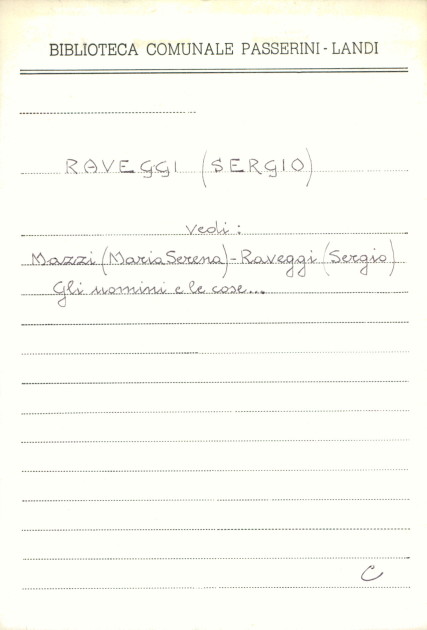 BIBLIOTECA COMUNALE PASSERINI - LANDI
RAVEGGI (SERGIO)
vedi :
Mazzi (Maria Serena) - Raveggi (Sergio)
Gli uomini e le cose...
C